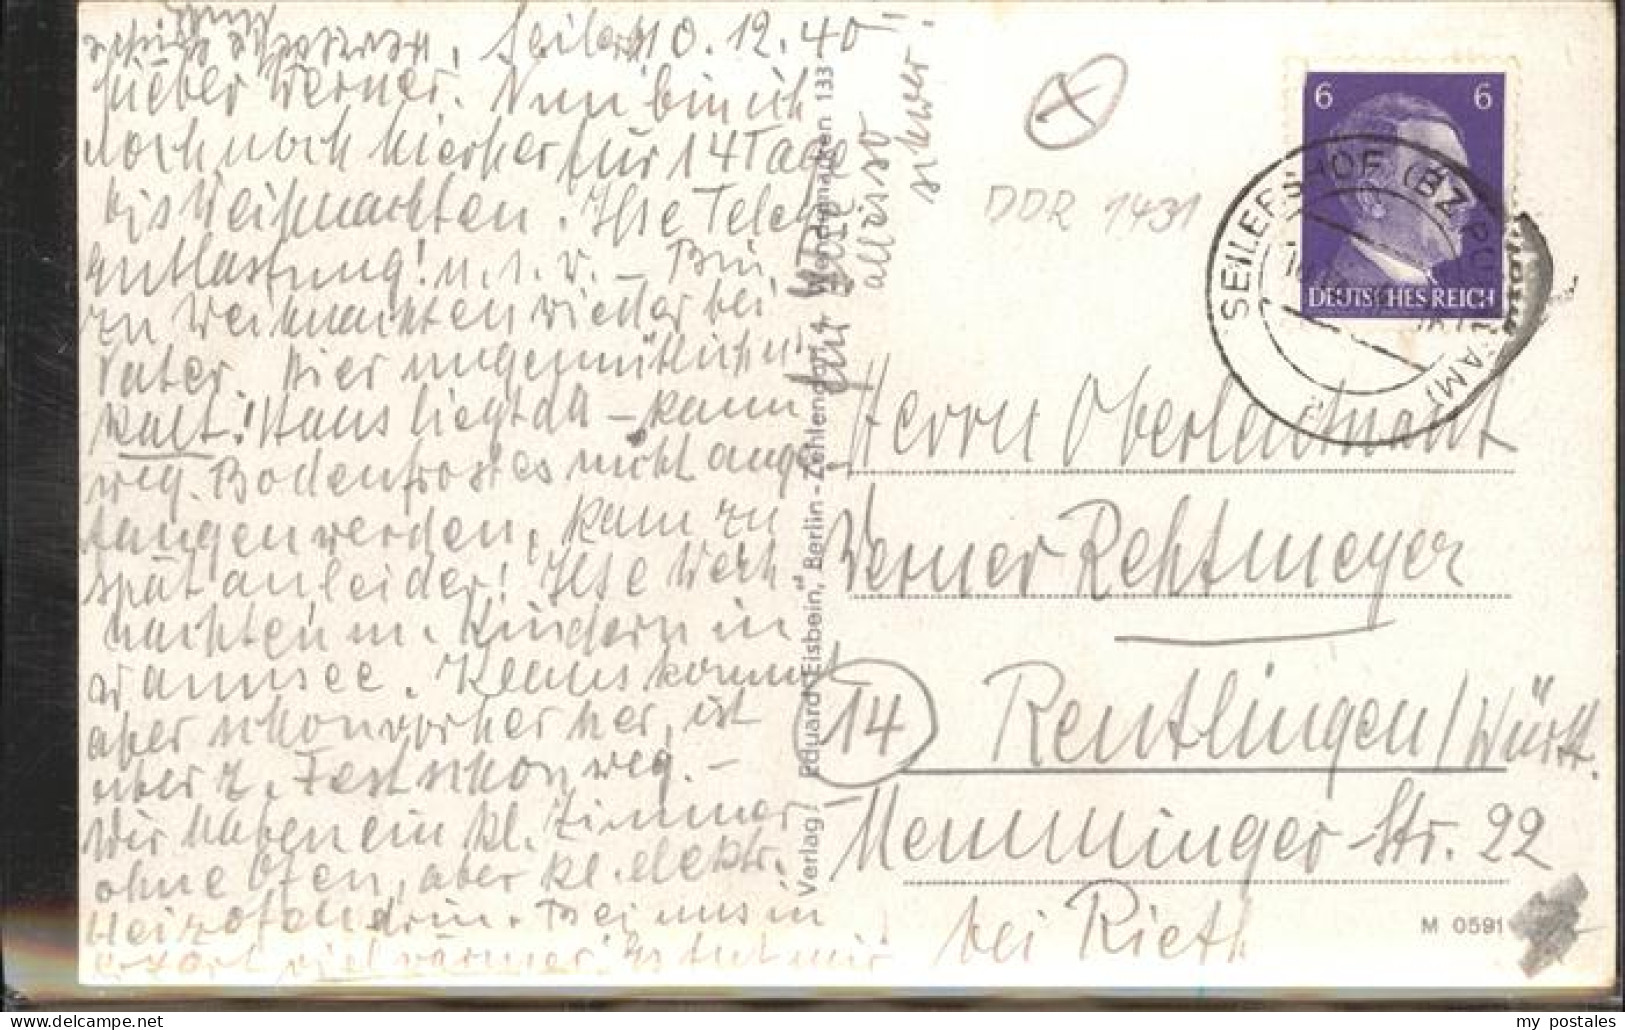 Seilersh. 10.12.40
Lieber Werner. Nun bin ich
doch noch hierher für 14 Tage
bis Weihnachten. Ilse
Entlastung! u.s.w. – Bin
zu Weihnachten wieder bei
Vater. Hier ungemütlich u.
kalt! Haus liegt da – kann
weg. Bodenfrostes nicht ange-
fangen werden, kam zu
spät an leider! Ilse Weih-
nachten m. Kindern in
Wannsee. Klaus kommt
aber schon vorher her, ist
aber z. Fest schon weg. –
Wir haben ein kl. Zimmer
ohne Ofen, aber kl. elektr.
Heizofen drin. Bei uns in
viel wärmer. Es tut mir
alles so
schwer.
Verlag „Eduard Eisbein," Berlin-Zehlendorf, Wendemarken 133
DDR 1431
6 6
DEUTSCHES REICH
SEILERSHOF (BZ
Herrn Oberleutnant
Werner Rehtmeyer
14
Reutlingen/Württ.
Memminger-Str. 22
bei Rieth
M 0591
my_postales